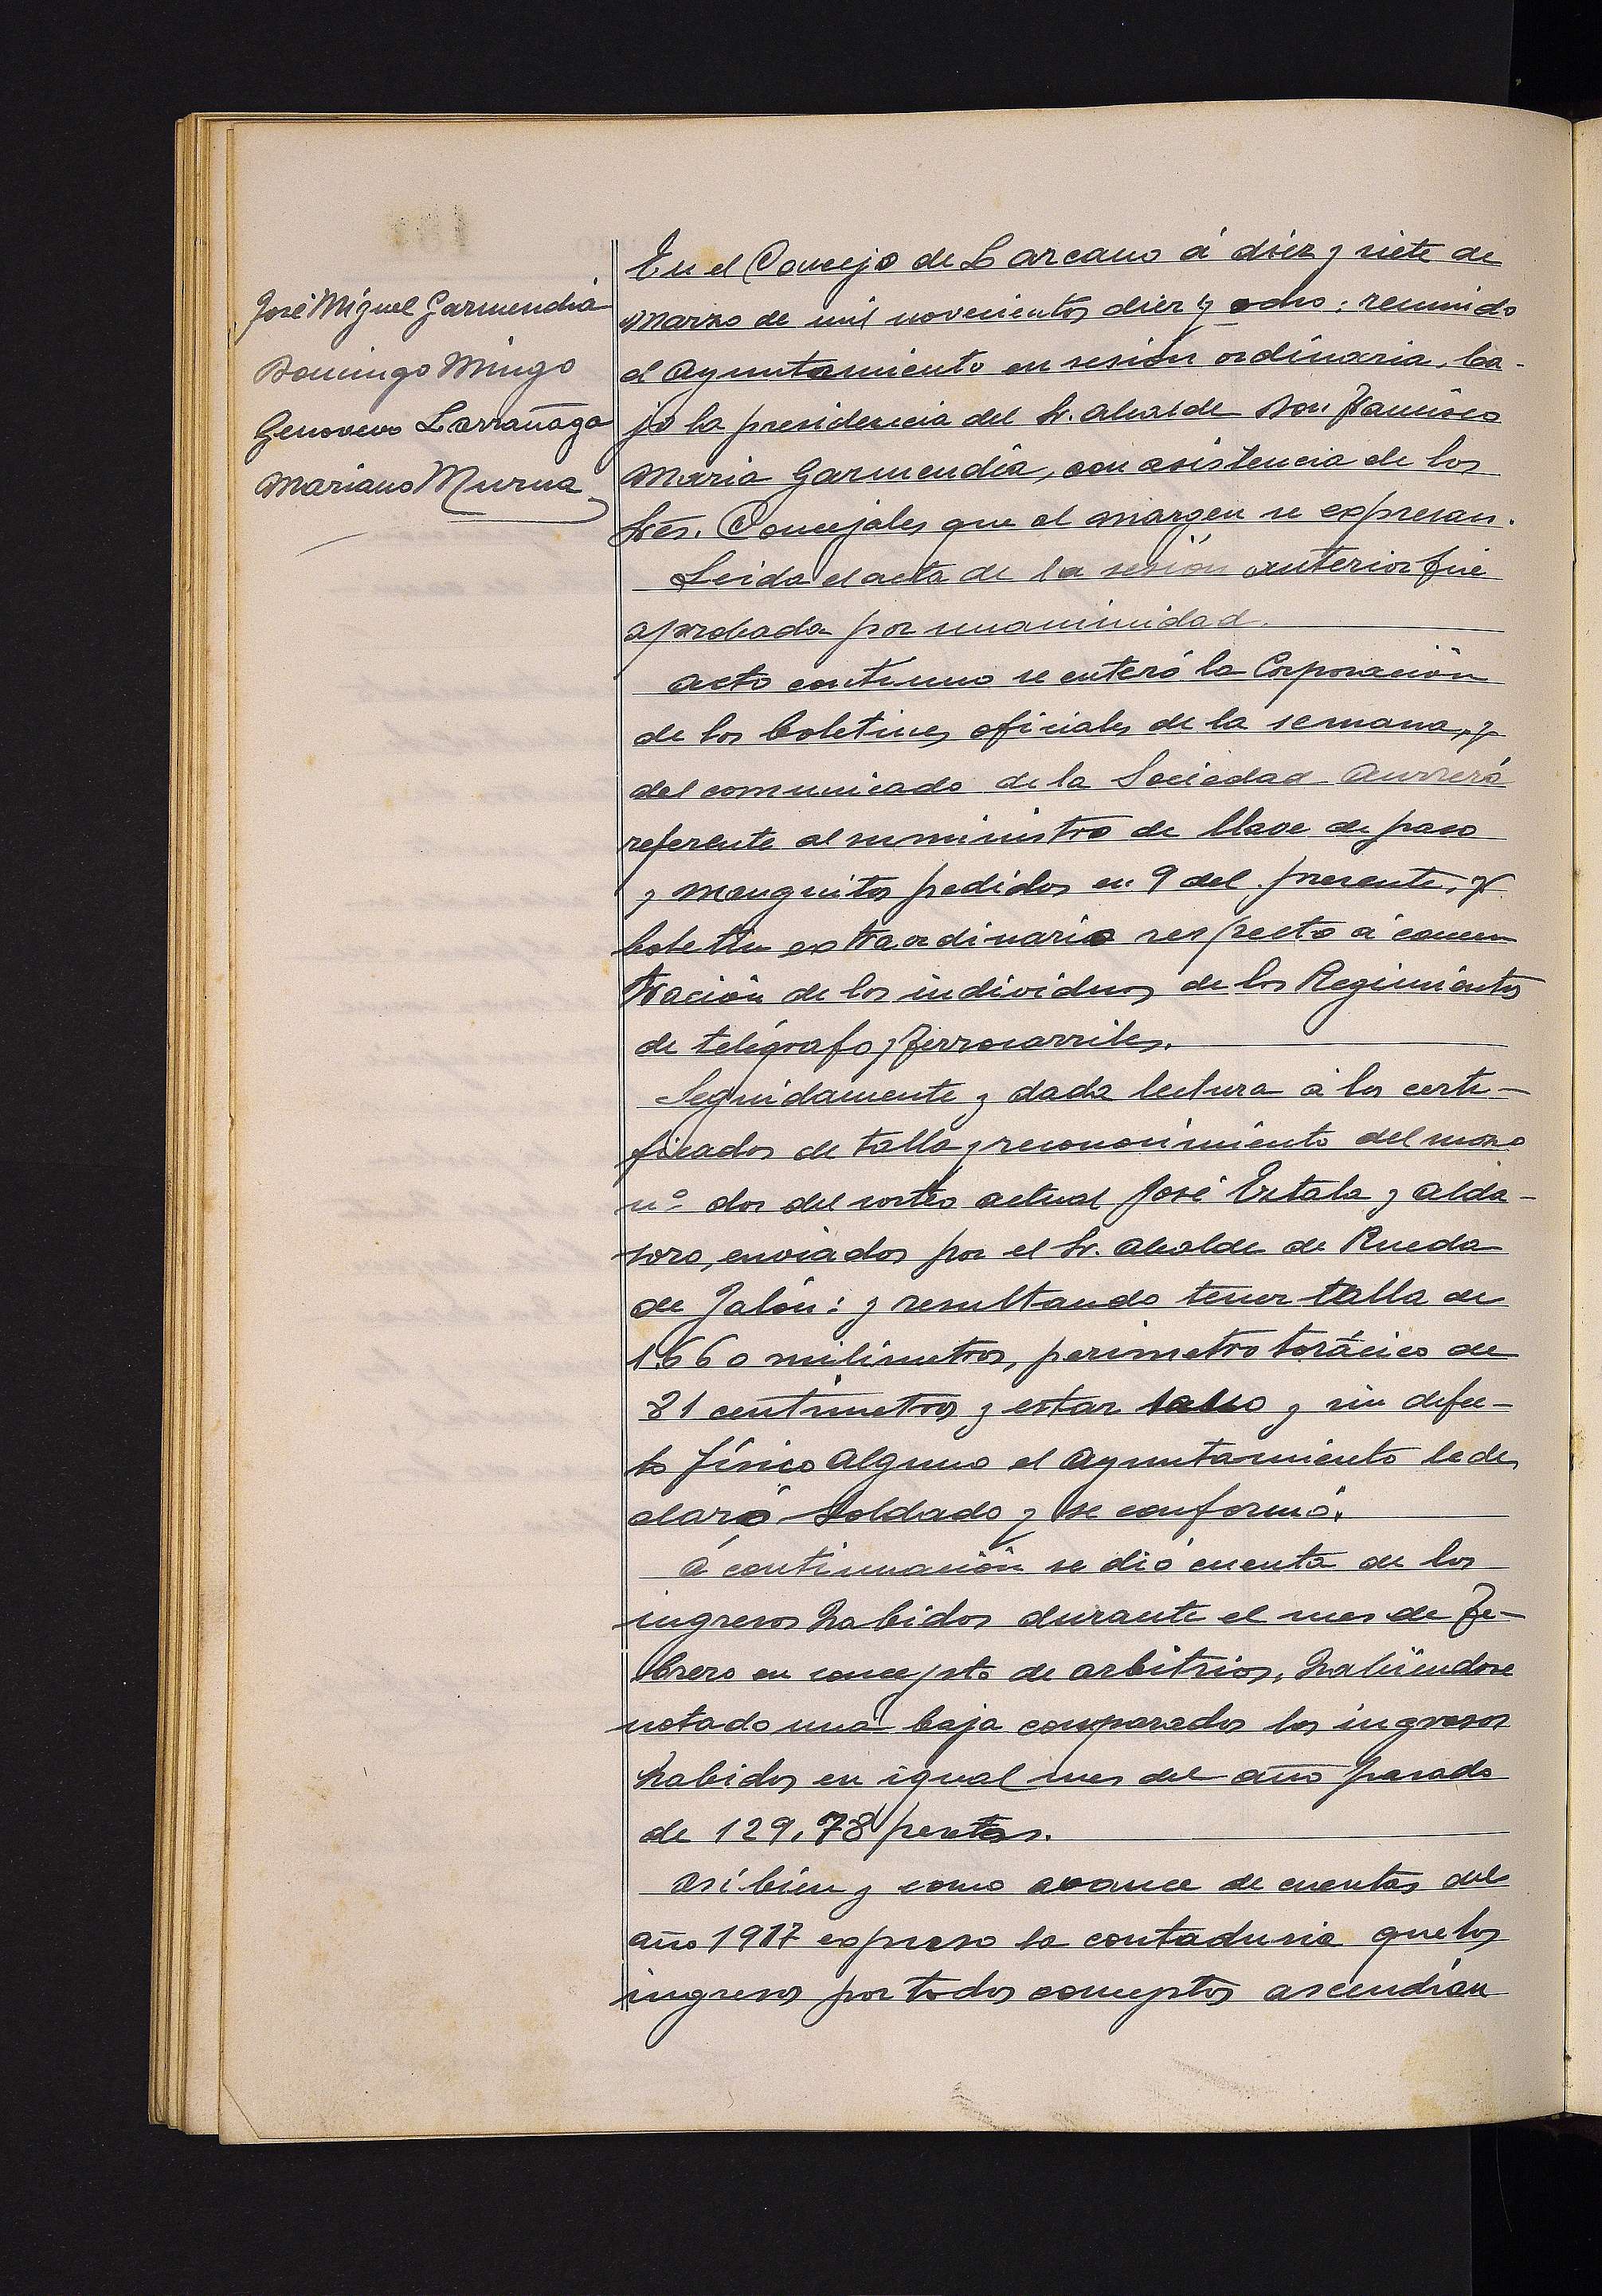 José Miguel Garmendia
Domingo Mingo
Genovevo Larrañaga
Mariano Murua
En el Concejo de Lazcano á diez y siete de
Marzo de mil novecientos diez y ocho: reunido
el Ayuntamiento en sesión ordinaria, ba-
jo la presidencia del Sr. Alcalde Don Francisco
Maria Garmendia, con asistencia de los
Srés. Concejales que al margen se expresan.
Leida el acta de la sesión anterior fué
aprobada por unanimidad.
Acto continuo se enteró la Corporación
de los boletines oficiales de la semana, y
del comunicado de la Sociedad Aurrerá
referente al suministro de llave de paso
y manguitos pedidos en 9 del presente, y
boletin extraordinario respecto á concen
tración de los individuos de los Regimientos
de telégrafo y ferrocarriles.
Seguidamente y dada lectura á los certi-
ficados de talla y reconocimiento del mozo
nº dos del sorteo actual José Estala y Alda-
soro, enviados por el Sr. Alcalde de Rueda
de Jalón: y resultando tener talla de
1.660 milímetros, perimetro torácico de
81 centimetros y estar sano y sin defec-
to físico alguno el Ayuntamiento le de
claró soldado y se conformó.
Á continuación se dió cuenta de los
ingresos habidos durante el mes de Fe-
brero en concepto de arbitrios, habiendose
notado una baja comparados los ingresos
habidos en igual mes del año pasado
de 129,78 pesetas.
Asi bien y como avance de cuentas del
año 1917 expreso la contaduria que los
ingresos por todos conceptos ascendian